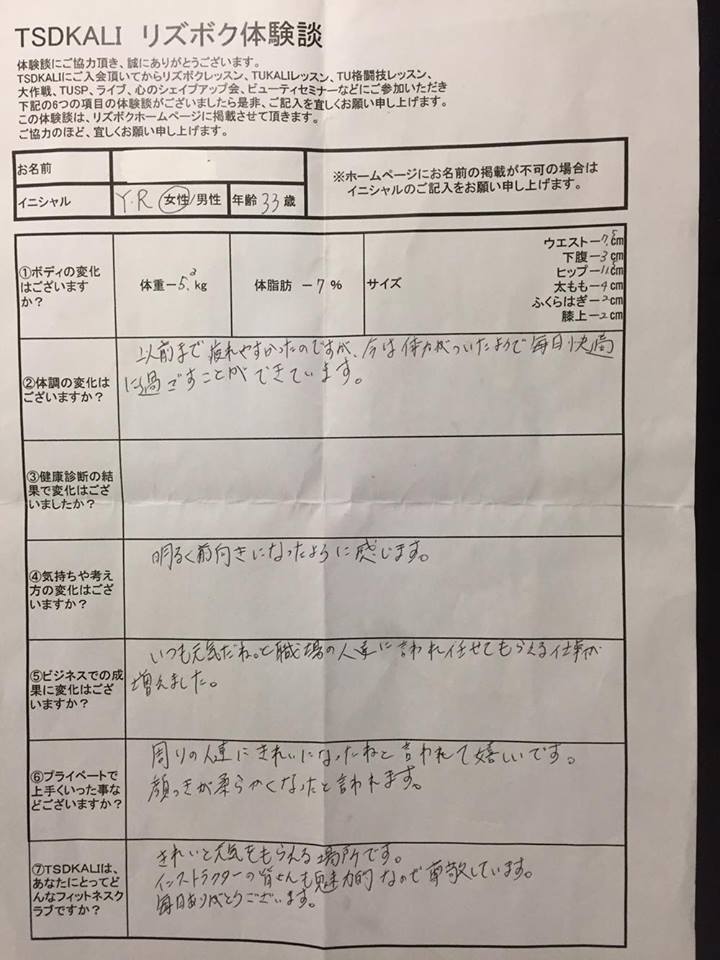 TSDKALI リズボク体験談
体験談にご協力頂き、誠にありがとうございます。
TSDKALIにご入会頂いてからリズボクレッスン、TUKALIレッスン、TU格闘技レッスン、
大作戦、TUSP、ライブ、心のシェイプアップ会、ビューティセミナーなどにご参加いただき
下記の6つの項目の体験談がございましたら是非、ご記入を宜しくお願い申し上げます。
この体験談は、リズボクホームページに掲載させて頂きます。
ご協力のほど、宜しくお願い申し上げます。
お名前
※ホームページにお名前の掲載が不可の場合は
イニシャルのご記入をお願い申し上げます。
イニシャル Y.R 女性/男性 年齢 33 歳
①ボディの変化
はございます
か?
体重ー5.2kg
体脂肪 －7％
サイズ
ウエストー7.5cm
下腹ー3cm
ヒップー11.5cm
太ももー4cm
ふくらはぎー2cm
膝上ー2cm
②体調の変化は
ございますか?
以前まで疲れやすかったのですが、今は体力がついたようで毎日快適
に過ごすことができています。
③健康診断の結
果で変化はござ
いましたか?
④気持ちや考え
方の変化はござ
いますか?
明るく前向きになったように感じます。
⑤ビジネスでの成
果に変化はござ
いますか?
いつも元気だね。と職場の人達に言われ任せてもらえる仕事が
増えました。
⑥プライベートで
上手くいった事な
どございますか?
周りの人達にきれいになったねと言われて嬉しいです。
顔つきが柔らかくなったと言われます。
⑦TSDKALIは、
あなたにとってど
んなフィットネスク
ラブですか?
きれいと元気をもらえる場所です。
インストラクターの皆さんも魅力的なので尊敬しています。
毎日ありがとうございます。